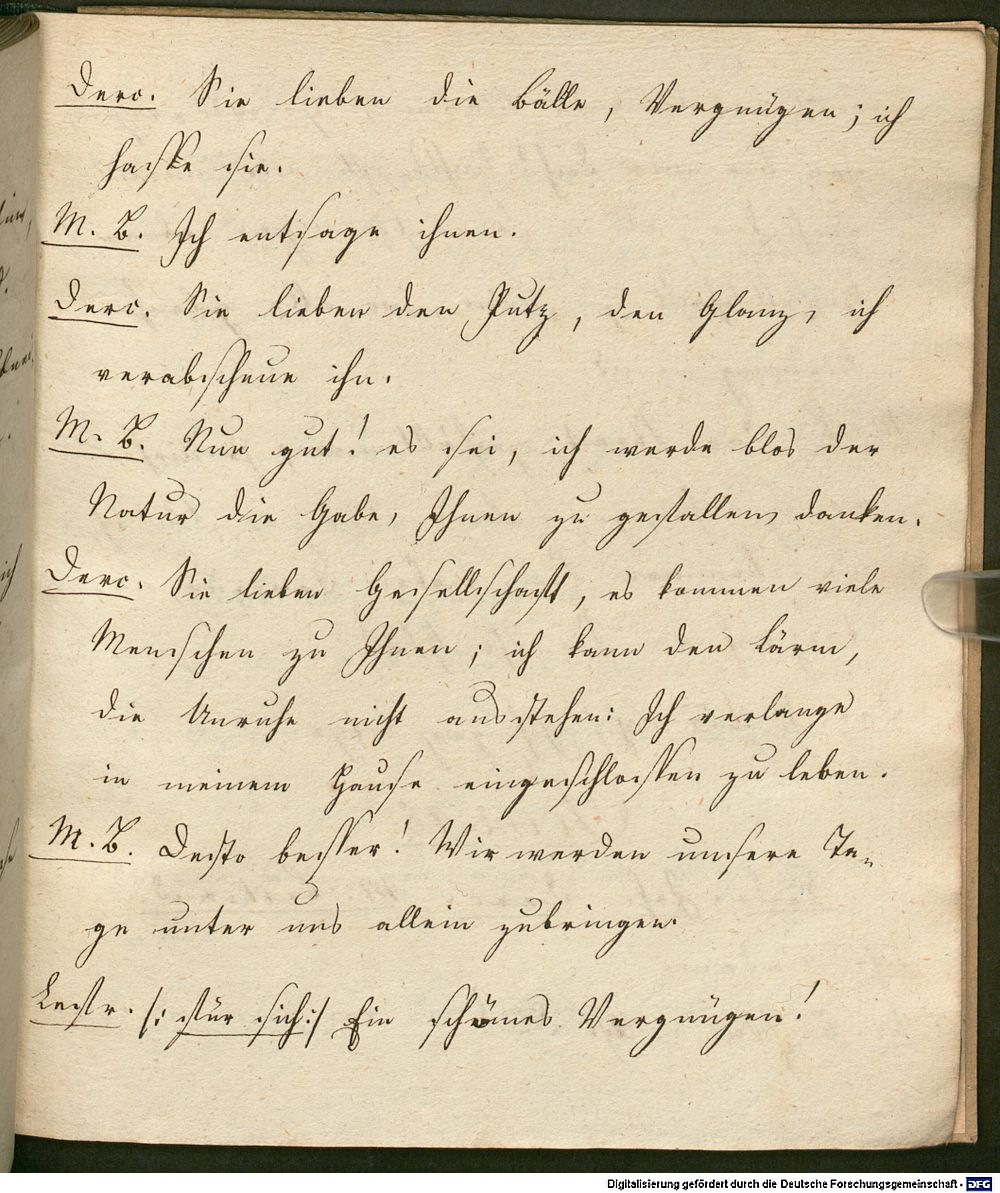 Derv. Sie lieben die Bälle, Vergnügen; ich
hasse sie.
M. B. Ich entsage ihnen.
Derv. Sie lieben den Putz, den Glanz, ich
verabscheue ihn.
M. B. Nun gut! es sei, ich werde blos der
Natur die Gabe, Ihnen zu gefallen, danken.
Derv. Sie lieben Gesellschaft, es kommen viele
Menschen zu Ihnen; ich kann den Lärm,
die Unruhe nicht ausstehen: Ich verlange
in meinem Hause eingeschlossen zu leben.
M. B. Desto besser! Wir werden unsere Ta-
ge unter uns allein zubringen.
/: für sich :/ Ein schönes Vergnügen!
Digitalisierung gefördert durch die Deutsche Forschungsgemeinschaft - DFG